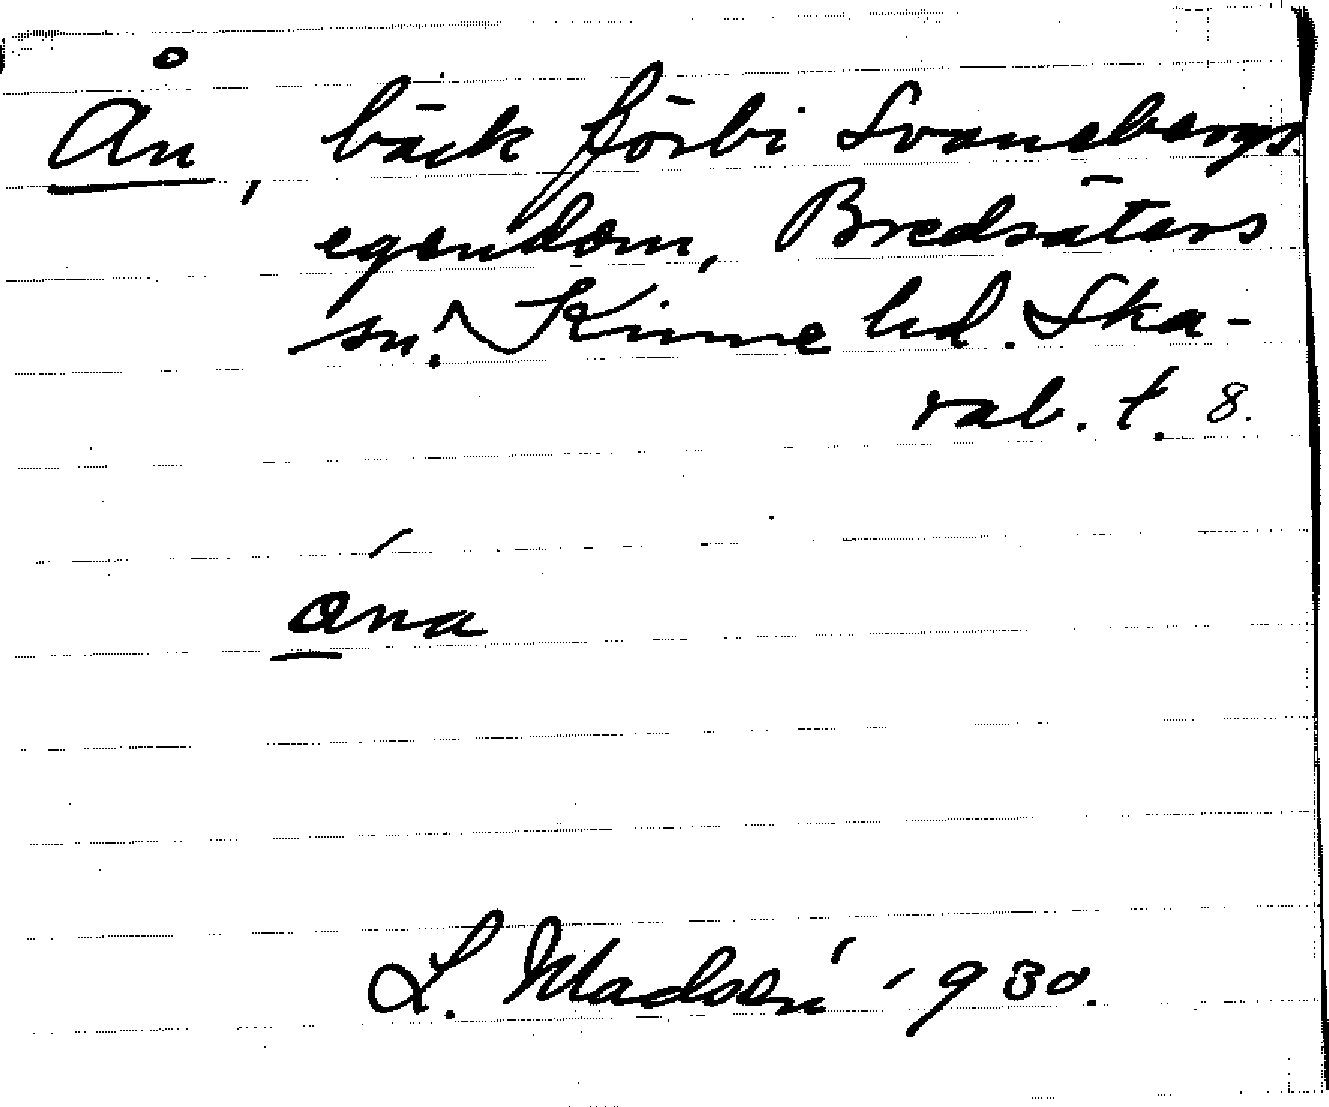 Ån, bäck förbi Svanebergs
egendom, Bredsäters
sn. Kinne hd. Ska-
rab. t. 8.
ána
L. Madsén 1930.